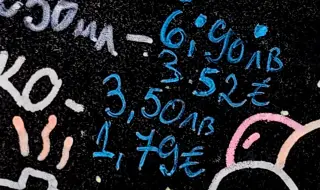 250мл - 6,90лв
3.52€
КО- 3,50лв
1,79€